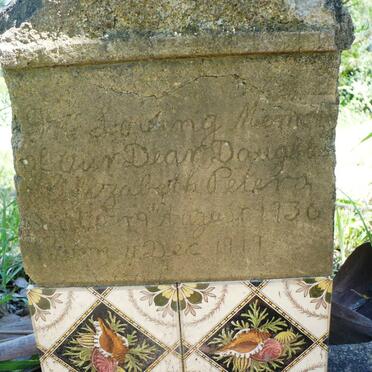 In Loving Memor
of our Dear Daughte
Elizabeth Peters
Died 19 August 1930
Born 11 Dec 1919